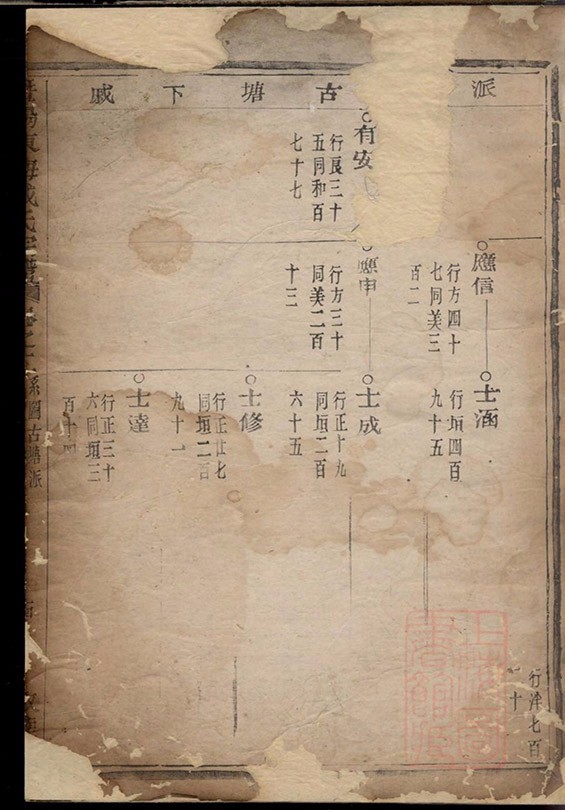 派 古塘下戚
應信
行方四十
七同美三
百二
士涵
行垣四百
九十五
有安
行良三十
五同和百
七十七
應申
行方三十
同美二百
十三
士成
行正十九
同垣二百
六十五
士修
行正廿七
同垣二百
九十一
士達
行正三十
六同垣三
百十四
行洋七百
十
海戚氏宗譜
系圖古塘派